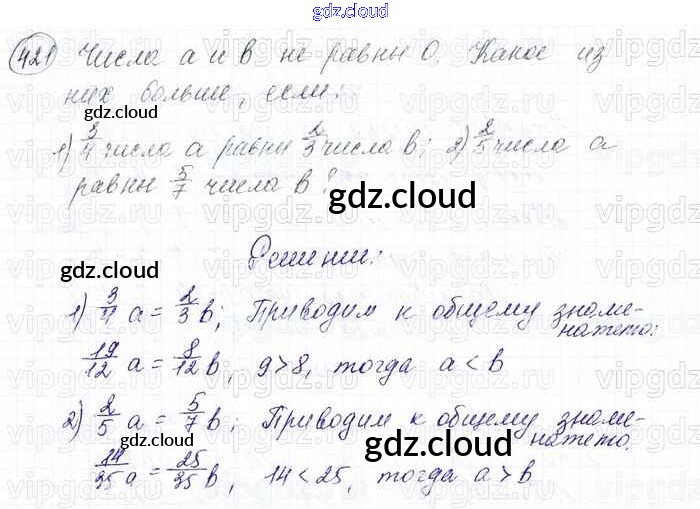 gdz.cloud
421 Числа a и b не равны 0. Какое из
них больше, если:
gdz.cloud
1) 3/4 числа a равны 2/3 числа b; 2) 2/5 числа a
равны 5/7 числа b?
gdz.cloud
Решение:
gdz.cloud gdz.cloud
1) 3/4 a = 2/3 b; Приводим к общему знаме-
нателю:
19/12 a = 8/12 b, 9 > 8, тогда a < b
2) 2/5 a = 5/7 b; Приводим к общему знаме-
нателю.
gdz.cloud gdz.cloud
14/35 a = 25/35 b, 14 < 25, тогда a > b